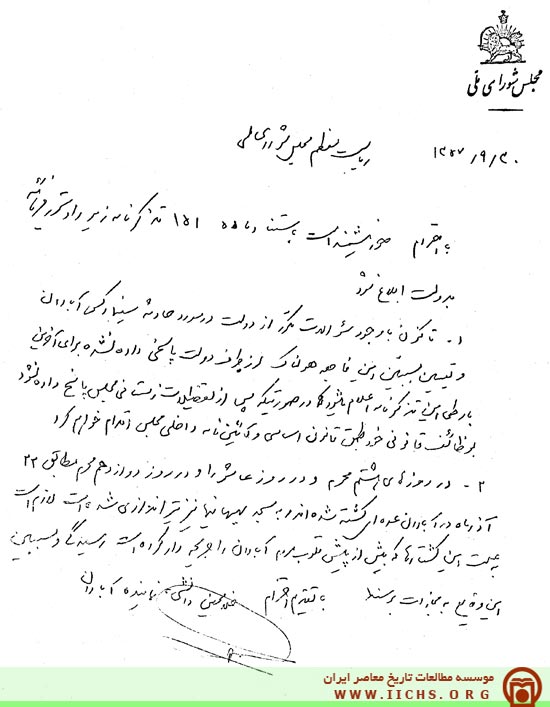 مجلس شورای ملی
ریاست معظم مجلس شورای ملی
۱۳۵۷/۹/۳۰
با احترام خواهشمند است باستناد ماده ۱۵۱ تذکرنامه زیر را دستور فرمائید
بدولت ابلاغ شود
۱- تاکنون باوجود سئوالات مکرر از دولت در مورد حادثه سینما رکس آبادان
و تعیین مسببین این فاجعه هولناک از طرف دولت پاسخی داده نشده برای آخرین
بار طی این تذکرنامه اعلام میشود که در صورتیکه پس از تعطیلات زمستانی مجلس پاسخ داده نشود
بوظائف قانونی خود طبق قانون اساسی و آئین نامه داخلی مجلس اقدام خواهم کرد
۲- در روزهای هشتم محرم و در روز عاشورا و در روز دوازدهم محرم مطابق ۲۲
آذرماه در آبادان عده ای کشته شده اند و به مسجد بهبهانیها نیز تیراندازی شده است لازم است
بعلت این کشتارها که بیش از پیش قلوب مردم آبادان را جریحه دار کرده است رسیدگی و مسببین
این وقایع به مجازات برسند با تقدیم احترام غلامحسین دانشی نماینده آبادان
موسسه مطالعات تاریخ معاصر ایران
WWW.IICHS.ORG